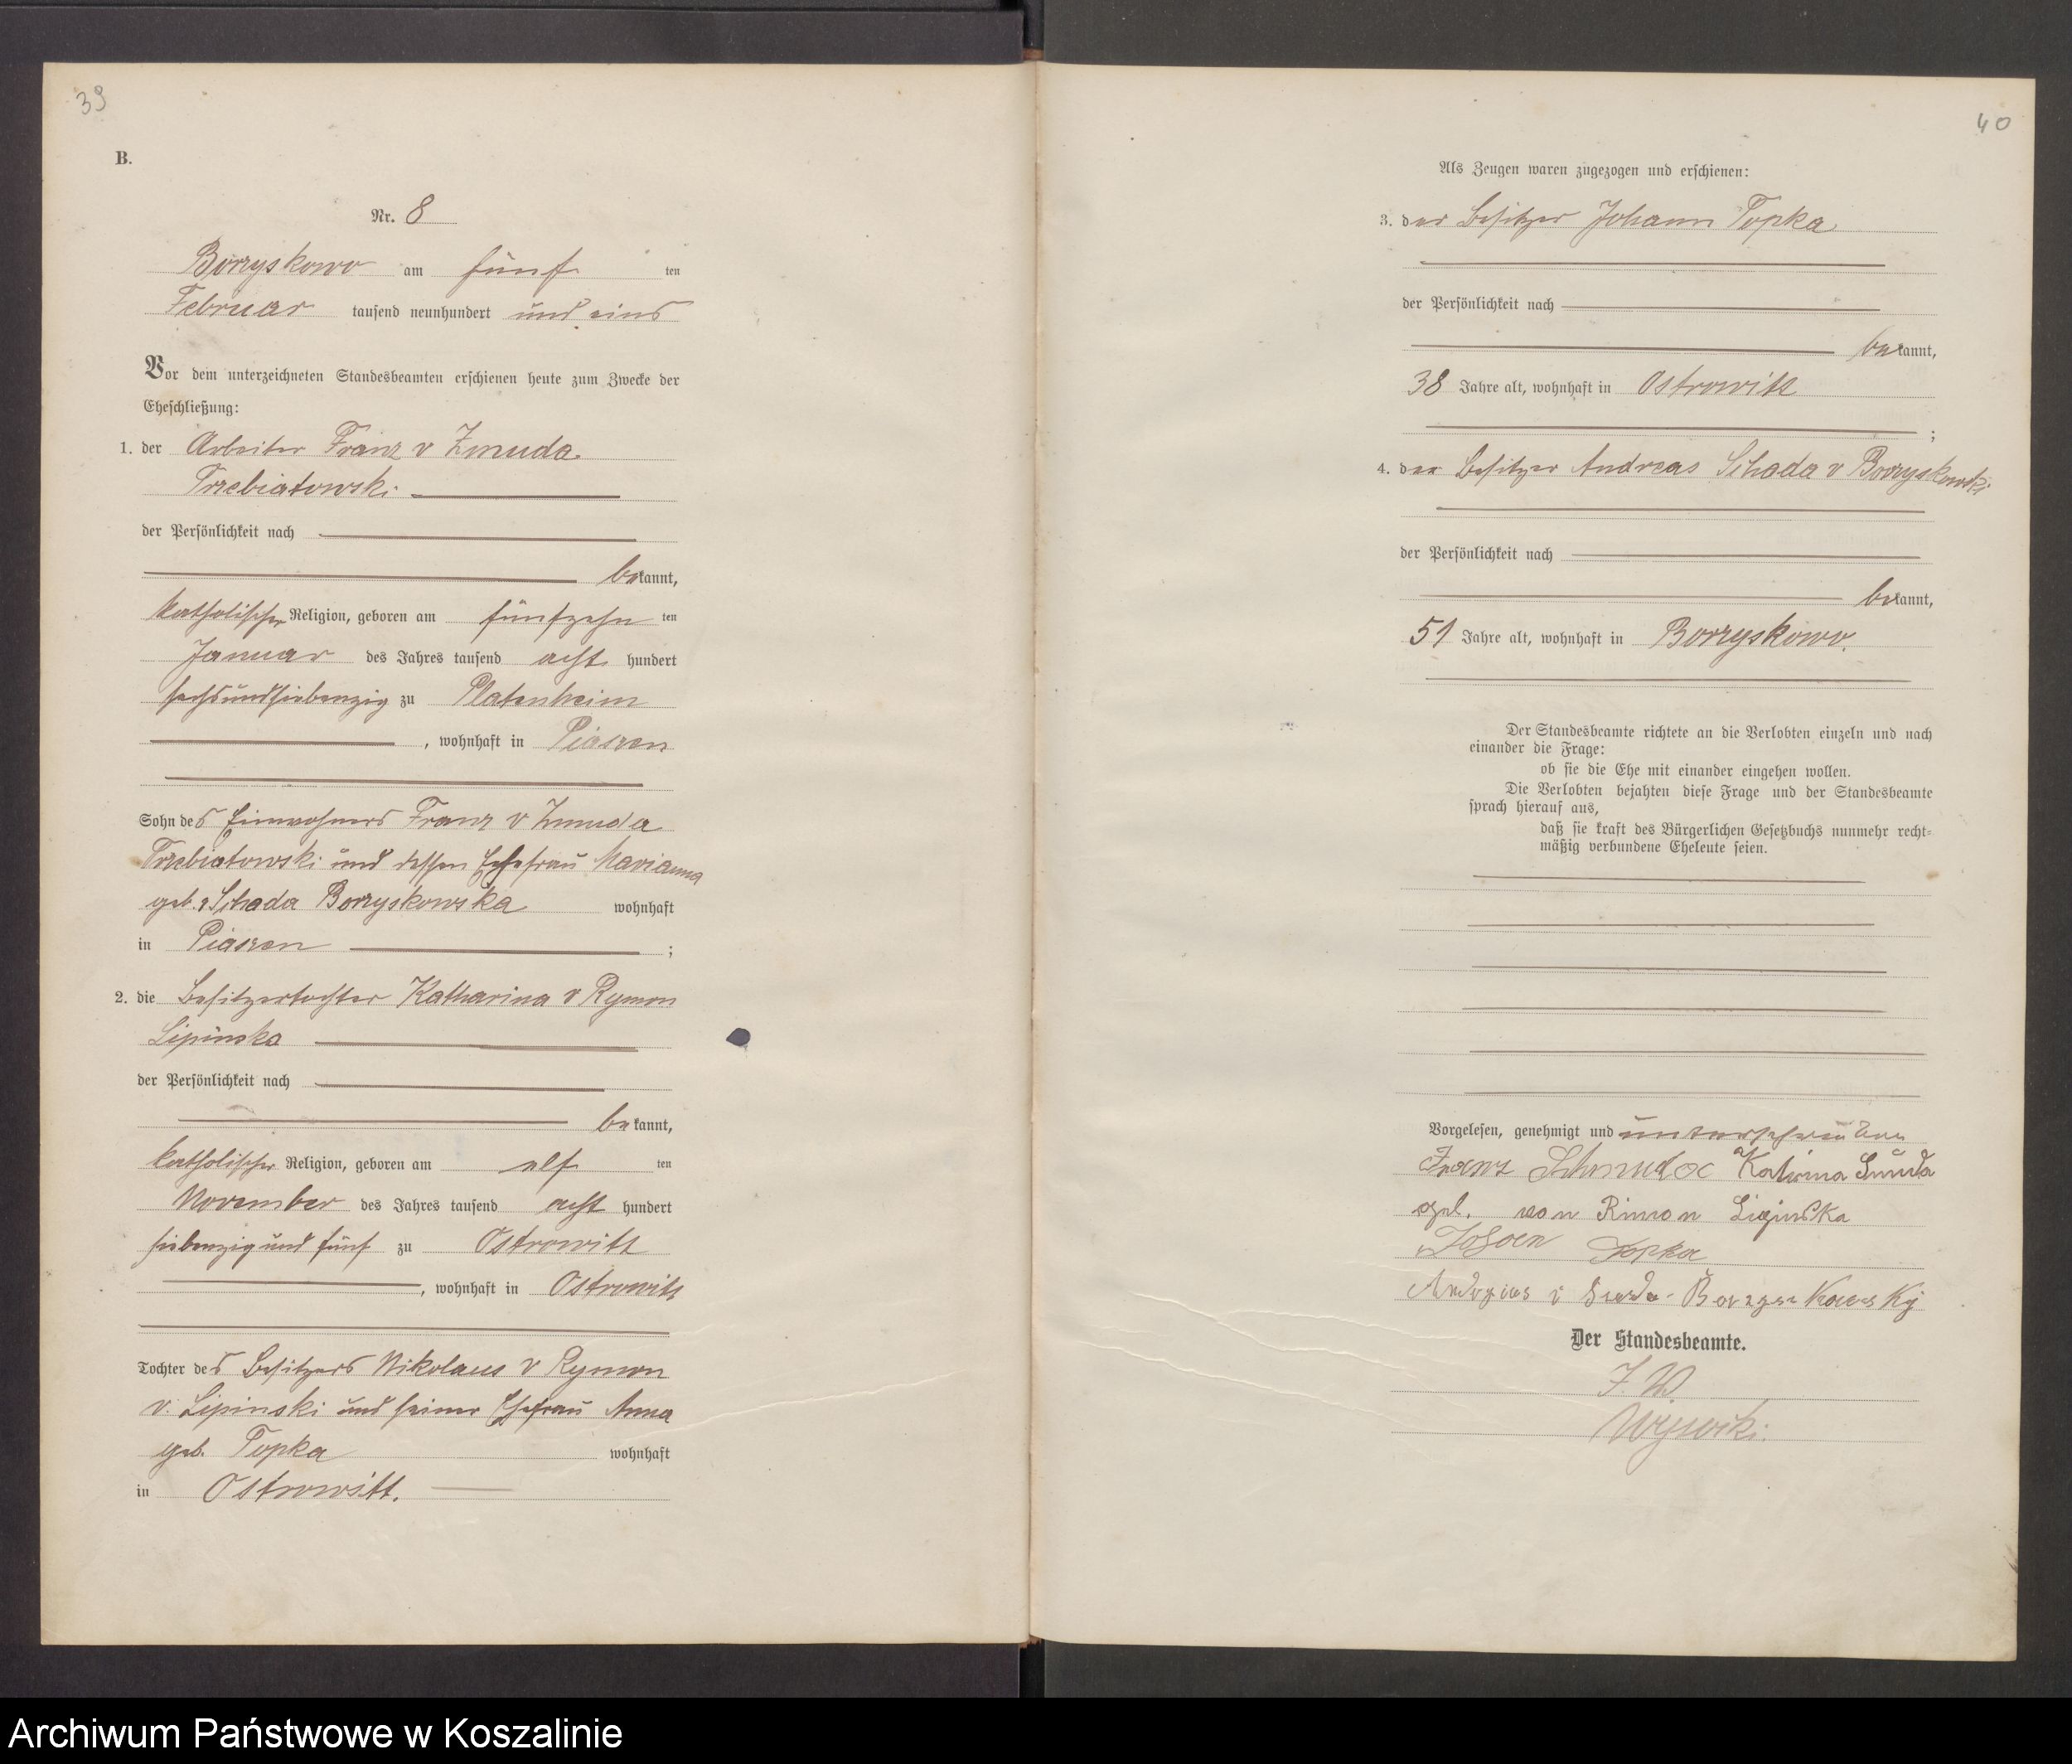 39
B.
Nr. 8
Borzyskowo am fünf ten
Februar tausend neunhundert und eins
Vor dem unterzeichneten Standesbeamten erschienen heute zum Zwecke der
Eheschließung:
1. der Arbeiter Franz v Zmuda
Trzebiatowski
der Persönlichkeit nach
bekannt,
katholischer Religion, geboren am fünfzehn ten
Januar des Jahres tausend acht hundert
sechsundsiebenzig zu Platenheim
, wohnhaft in Piaszen
Sohn des Einwohners Franz v Zmuda
Trzebiatowski und dessen Ehefrau Marianna
geb. v Schada Borzyskowska wohnhaft
in Piaszen ;
2. die Besitzertochter Katharina v Rymon
Lipinska
der Persönlichkeit nach
bekannt,
katholischer Religion, geboren am elf ten
November des Jahres tausend acht hundert
siebenzig und fünf zu Ostrowitt
, wohnhaft in Ostrowitt
Tochter des Besitzers Nikolaus v Rymon
v. Lipinski und seiner Ehefrau Anna
geb. Topka wohnhaft
in Ostrowitt.
40
Als Zeugen waren zugezogen und erschienen:
3. der Besitzer Johann Topka
der Persönlichkeit nach
bekannt,
38 Jahre alt, wohnhaft in Ostrowitt
;
4. der Besitzer Andreas Schada v Borzyskowski
der Persönlichkeit nach
bekannt,
51 Jahre alt, wohnhaft in Borzyskowo.
Der Standesbeamte richtete an die Verlobten einzeln und nach
einander die Frage:
ob sie die Ehe mit einander eingehen wollen.
Die Verlobten bejahten diese Frage und der Standesbeamte
sprach hierauf aus,
daß sie kraft des Bürgerlichen Gesetzbuchs nunmehr recht-
mäßig verbundene Eheleute seien.
Vorgelesen, genehmigt und unterschrieben
Franz Schmuda Katrina
geb. von Rimon Lipinska
Topka
Der Standesbeamte.
I. V
Wysocki.
Archiwum Państwowe w Koszalinie